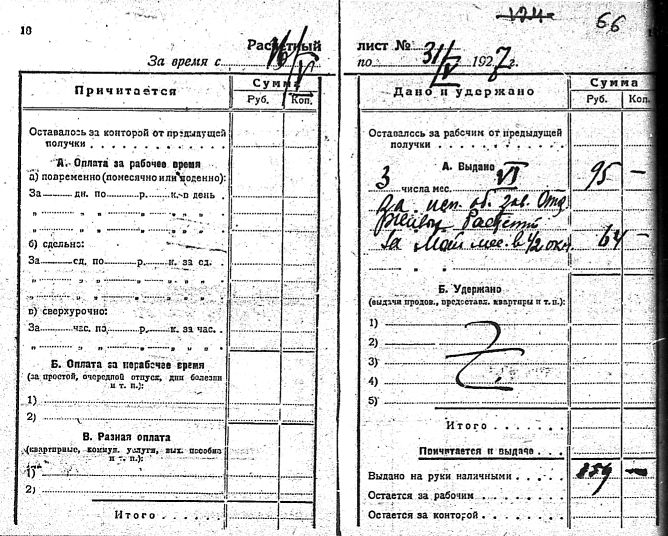 10
Расчетный
За время с 16/V
Причитается
Сумма
Руб. Коп.
Оставалось за конторой от предыдущей
получки
А. Оплата за рабочее время
а) повременно (помесячно или поденно):
За дн. по р. к. в день
" " " "
" " " "
б) сдельно:
За сд. по р. к. за сд.
" " " "
" " " "
в) сверхурочно:
За час. по р. к. за час.
" " " "
Б. Оплата за нерабочее время
(за простой, очередной отпуск, дни болезни
и т. п.):
1)
2)
В. Разная оплата
(квартирные, коммун. услуги, вых. пособия
и т. п.):
1)
2)
Итого
124
66
лист №
по 31/V 1927 г.
Дано и удержано
Сумма
Руб. Коп.
Оставалось за рабочим от предыдущей
получки
А. Выдано
3 числа мес. VI 95 —
за исп. об. зав. Отд.
Расчет
за Май мес. в 1/2 окл. 64 —
" "
Б. Удержано
(выдачи продов., предоставл. квартиры и т. п.):
1)
2)
3)
4)
5)
Итого
Причитается к выдаче
Выдано на руки наличными 159 —
Остается за рабочим
Остается за конторой